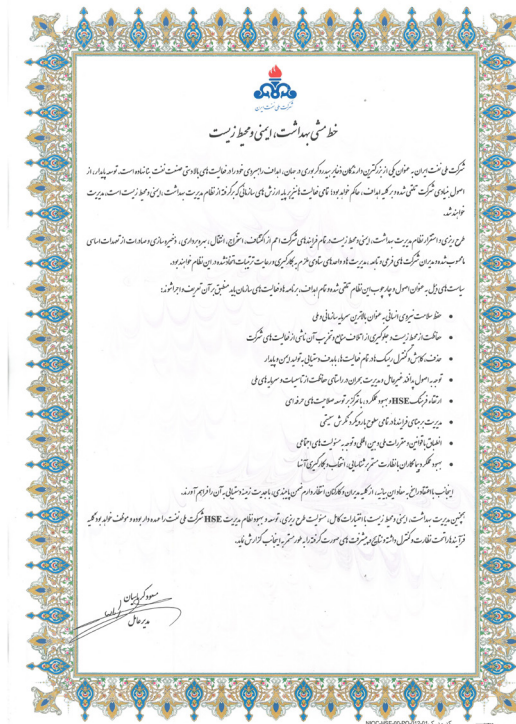 شرکت ملی نفت ایران
خط مشی بهداشت، ایمنی و محیط زیست
شرکت ملی نفت ایران به عنوان یکی از بزرگترین دارندگان ذخایر هیدروکربوری در جهان، اهداف راهبردی خود را در فعالیت های بالادستی صنعت نفت بنا نهاده است. توسعه پایدار، از
اصول بنیادی شرکت تلقی شده و بر کلیه اهداف، حاکم خواهد بود؛ تمامی فعالیت ها نیز بر پایه ارزش های سازمانی که برگرفته از نظام مدیریت بهداشت، ایمنی و محیط زیست است، مدیریت
خواهند شد.
طرح ریزی و استقرار نظام مدیریت بهداشت، ایمنی و محیط زیست در تمام فرایندهای شرکت اعم از اکتشاف، استخراج، انتقال، بهره برداری، ذخیره سازی و صادرات از تعهدات اساسی
ما محسوب شده و مدیران شرکت های فرعی و تابعه، مدیریت ها و واحدهای ستادی ملزم به بکارگیری و رعایت ترتیبات اتخاذ شده در این نظام خواهند بود.
سیاست های ذیل به عنوان اصول و چارچوب این نظام تلقی شده و تمام اهداف، برنامه ها و فعالیت های سازمان باید منطبق بر آن تعریف و اجرا شوند:
• حفظ سلامت نیروی انسانی به عنوان بالاترین سرمایه سازمانی و ملی
• حفاظت از محیط زیست و جلوگیری از اتلاف منابع و تخریب آن ناشی از فعالیت های شرکت
• حذف، کاهش و کنترل ریسک ها در تمام فعالیت ها، با هدف دستیابی به تولید ایمن و پایدار
• توجه به اصول پدافند غیرعامل و مدیریت بحران در راستای حفاظت از تاسیسات و سرمایه های ملی
• ارتقاء فرهنگ HSE و بهبود عملکرد، با تمرکز بر توسعه صلاحیت های حرفه ای
• مدیریت بر مبنای فرایندها در تمامی سطوح با رویکرد نگرش سیستمی
• انطباق با قوانین و مقررات ملی و بین المللی و توجه به مسئولیت های اجتماعی
• بهبود عملکرد پیمانکاران با نظارت مستمر بر شناسایی، انتخاب و بکارگیری آنها
اینجانب با اعتقاد راسخ به مفاد این بیانیه، از کلیه مدیران و کارکنان انتظار دارم ضمن پایبندی، با جدیت زمینه دستیابی به آن را فراهم آورند.
همچنین مدیریت بهداشت، ایمنی و محیط زیست با اختیارات کامل، مسئولیت طرح ریزی، توسعه و بهبود نظام مدیریت HSE شرکت ملی نفت را عهده دار بوده و موظف خواهد بود کلیه
فرآیندها را تحت نظارت و کنترل داشته و نتایج و پیشرفت های صورت گرفته را به طور مستمر به اینجانب گزارش نماید.
مسعود کرباسیان
مدیر عامل
NIOC-HSE-00-PO-012-01